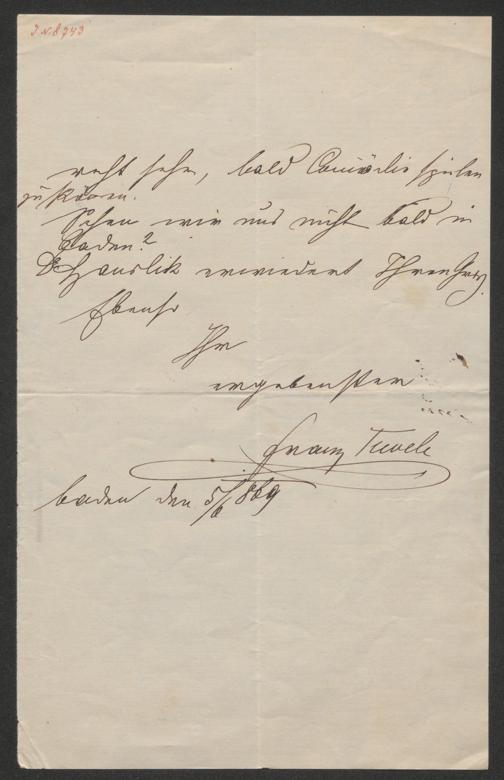 J.N. 8743
recht sehr, bald Comödie spielen
zu können.
Sehen wir uns nicht bald in
Baden?
Dr Hanslik erwiedert Ihren Gruß.
Ebenso
Ihr
ergebenster
Franz Tewele
Baden den 5/6 869